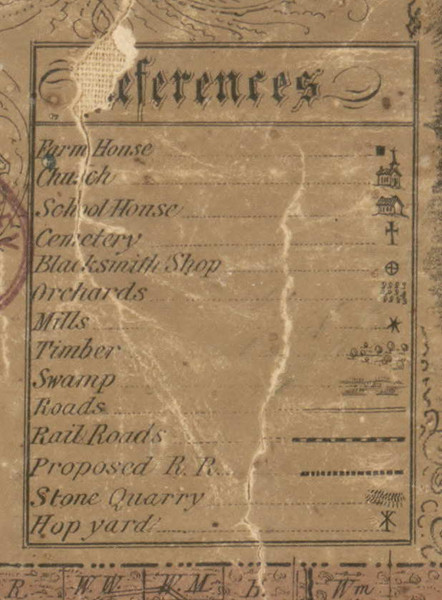 References
Farm House
Church
School House
Cemetery
Blacksmith Shop
Orchards
Mills
Timber
Swamp
Roads
Rail Roads
Proposed R. R.
Stone Quarry
Hop yard
R. W. W. W. M. Wm